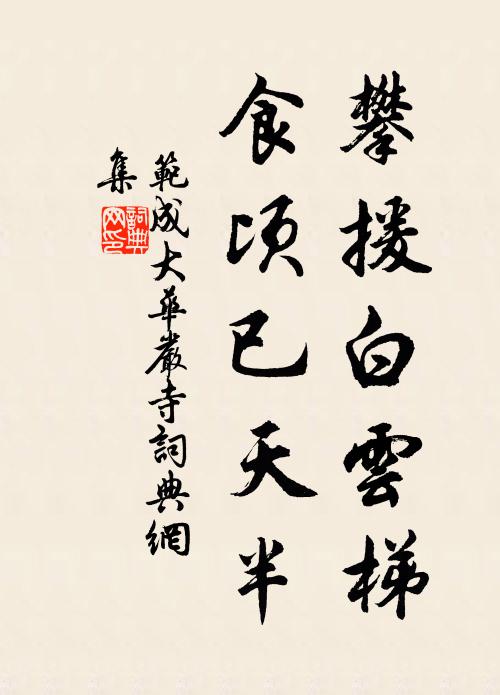 攀援白雲梯
食頃已天半
範成大華嚴寺詞典網
集
詞典
网印